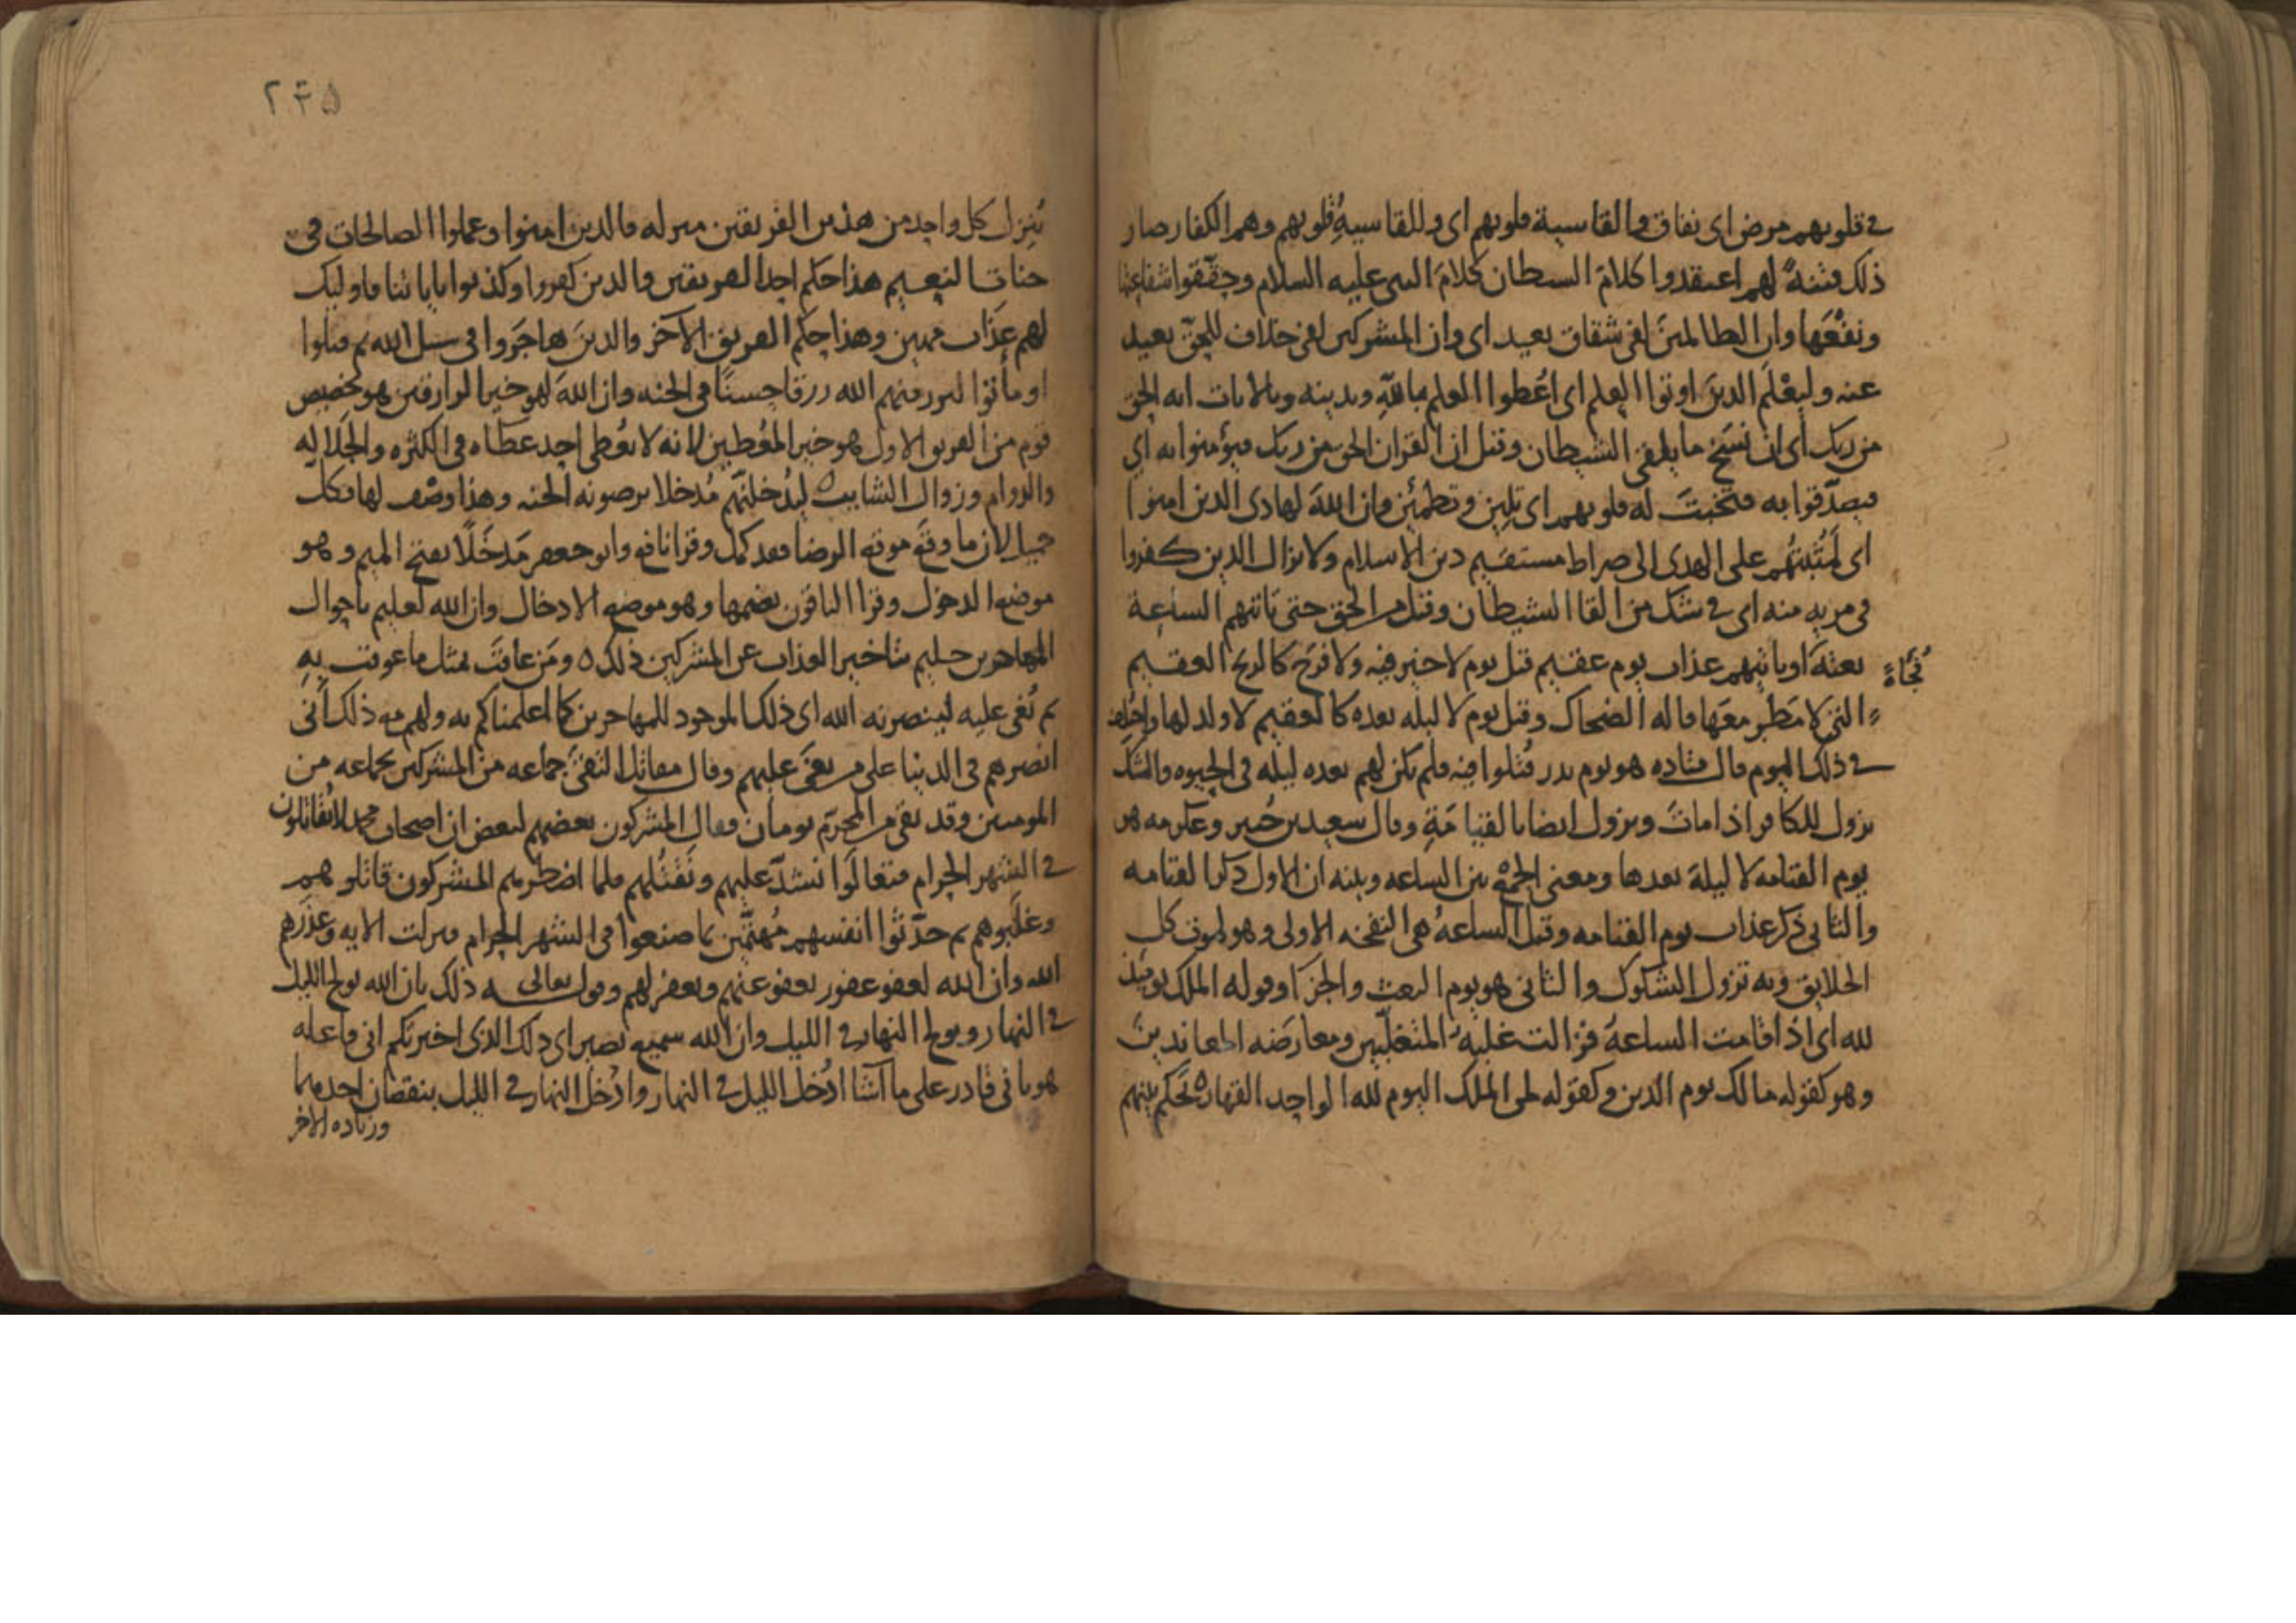 في قلوبهم مرض اى نفاق والقاسية قلوبهم اى وللقاسيةِ قلوبهم وهم الكفار صار
ذلك فتنةً لهم اعتقدوا كلامَ الشيطان كلامَ النبي عليه السلام وحققوا شفاعتها
ونفْعَها وان الظالمينَ لفي شقاق بعيد اى وان المشركين لفي خلاف للحق بعيد
عنه وليعْلَم الذينَ اوتوا العِلم اى اُعطوا العلم باللهِ وبدينه وبالايات انه الحق
من ربك اى ان نَسْخ ما يلقي الشيطان وقيل ان القرانَ الحق من ربك فيؤمنوا به اي
فيصدّقوا به فتخبتَ له قلوبهم اى تلين وتطمئن وان اللهَ لهادى الذين امنوا
اى لمُثبّتُهم على الهدى الى صراط مستقيم دين الاسلام ولا يزال الذين كفروا
في مرية منه اى في شك من القا الشيطان وقيل من الحق حتى تاتيهم الساعة
بغتةً او ياتيهم عذاب يوم عقيم قيل يوم لا خير فيه ولا فرَح كالريح العقيم
فُجاءَةً
التي لا مَطَر معَها قاله الضحاك وقيل يوم لا ليله بعده كالعقيم لا ولد لها واختلف
في ذلك اليوم قال قتاده هو يوم بدر قُتلوا فيه فلم يكن لهم بعده ليله في الحيوه والشك
يزول للكافر اذا ماتَ ويزول ايضا بالقيامَةِ وقال سعيد بن جُبير وعكرمه هو
يوم القيامه لا ليلةَ بعدها ومعنى الجمْع بين الساعه وبينه ان الاول ذكر القيامه
والثاني ذكر عذاب يوم القيامه وقيل الساعهُ هي النفخه الاولى وهو لموت كل
الخلايق وبه تزول الشكوك والثاني هو يوم البعث والجزا وقوله الملك يوميذ
لله اى اذا قامت الساعةُ فزالت غلبة المتغلّبين ومعارضَه المعاندين
وهو كقوله مالك يوم الدين وكقوله لمن الملك اليوم لله الواحد القهار ه يَحكم بينهم
٢٤٥
يُنزِل كل واحد من هذين الفريقين منزله فالذين امنوا وعملوا الصالحات في
جنات النعيم هذا حكم احد الفريقين والذين كفروا وكذبوا باياتنا فاوليك
لهم عذاب مهين وهذا حكم الفريق الآخر والذينَ هاجَروا في سبيل الله ثم قتلوا
او ماتوا ليرزقنهم الله رزقا حسنًا في الجنه وان اللهَ لهو خير الرازقين هو تخصيص
قوم من الفريق الاول هو خير المعُطين لانه لا يعُطي احد عطاه في الكثره والجَلاله
والدوام وزوال الشايب ه ليُدْخلنّهم مُدخلا يرضونه الجنه وهذا وصْف لها بكل
جميل لان ما وقَع موقع الرضا فقد كمل وقرا نافع وابو جعفر مَدخَلًا بفتح الميم وهو
موضع الدخول وقرا الباقون بضمها وهو موضع الادخال وان الله لعليم باحوال
المهاجرين حليم بتاخير العذاب عن المشركين ذلك ه ومَن عاقبَ بمثل ما عوقب بِهِ
ثم بُغي عليه لينصرنه الله اى ذلك الموجود للمهاجرين كما اعلمناكم به ولهم مع ذلك أنى
انصرهم في الدنيا على من بغى عليهم وقال مقاتل التقىَ جماعه من المشركين بجماعه من
المومنين وقد بقي من المحرّم يومان فقال المشركون بعضهم لبعض ان اصحاب محمد لا يُقاتلون
في الشهر الحرام فتعالَوا نشدّ عليهم ونقتُلهم فلما اضطرهم المشركون قاتلوهم
وغلَبوهم ثم حدّثوا انفسهم مُهتمّين بما صنعوا في الشهر الحرام فنزلت الايه وعذرَهم
الله وان الله لعفو غفور يعفو عنهم ويغفر لهم وقوله تعالى ذلك بان الله يولج الليل
في النهار ويولج النهار في الليل وان الله سميع بصير اى ذلك الذى اخبرتكم انى فاعله
هو بانى قادر على ما اشا اُدْخل الليل في النهار واُدخل النهار في الليل بنقصان احدهما
وزياده الاخر